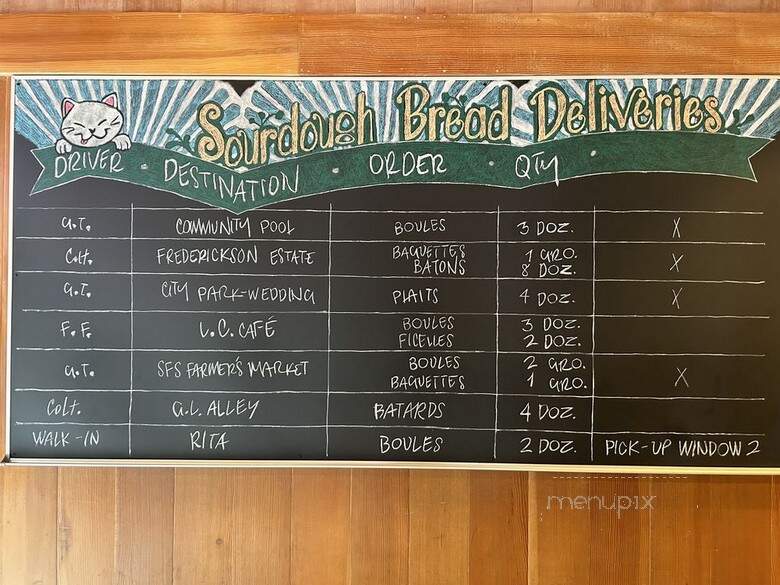 Sourdough Bread Deliveries
DRIVER · DESTINATION · ORDER · QTY ·
G.T. COMMUNITY POOL BOULES 3 DOZ. X
Colt. FREDERICKSON ESTATE BAGUETTES 1 GRO. X
BATONS 8 DOZ.
G.T. CITY PARK-WEDDING PLAITS 4 DOZ. X
F.F. L.C. CAFÉ BOULES 3 DOZ.
FICELLES 2 DOZ.
G.T. SFS FARMER'S MARKET BOULES 2 GRO. X
BAGUETTES 1 GRO.
Colt. G.L. ALLEY BATARDS 4 DOZ.
WALK-IN RITA BOULES 2 DOZ. PICK-UP WINDOW 2
menupix